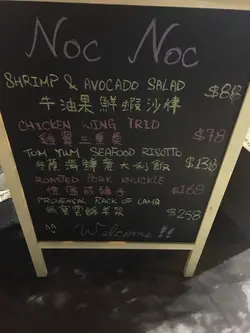 Noc Noc
SHRIMP & AVOCADO SALAD $88
牛油果鮮蝦沙律
CHICKEN WING TRIO $78
雞翼三重奏
TOM YUM SEAFOOD RISOTTO $138
冬蔭海鮮意大利飯
ROASTED PORK KNUCKLE $168
燒
PROVENCAL RACK OF LAMB $258
羊架
^^ Welcome!!